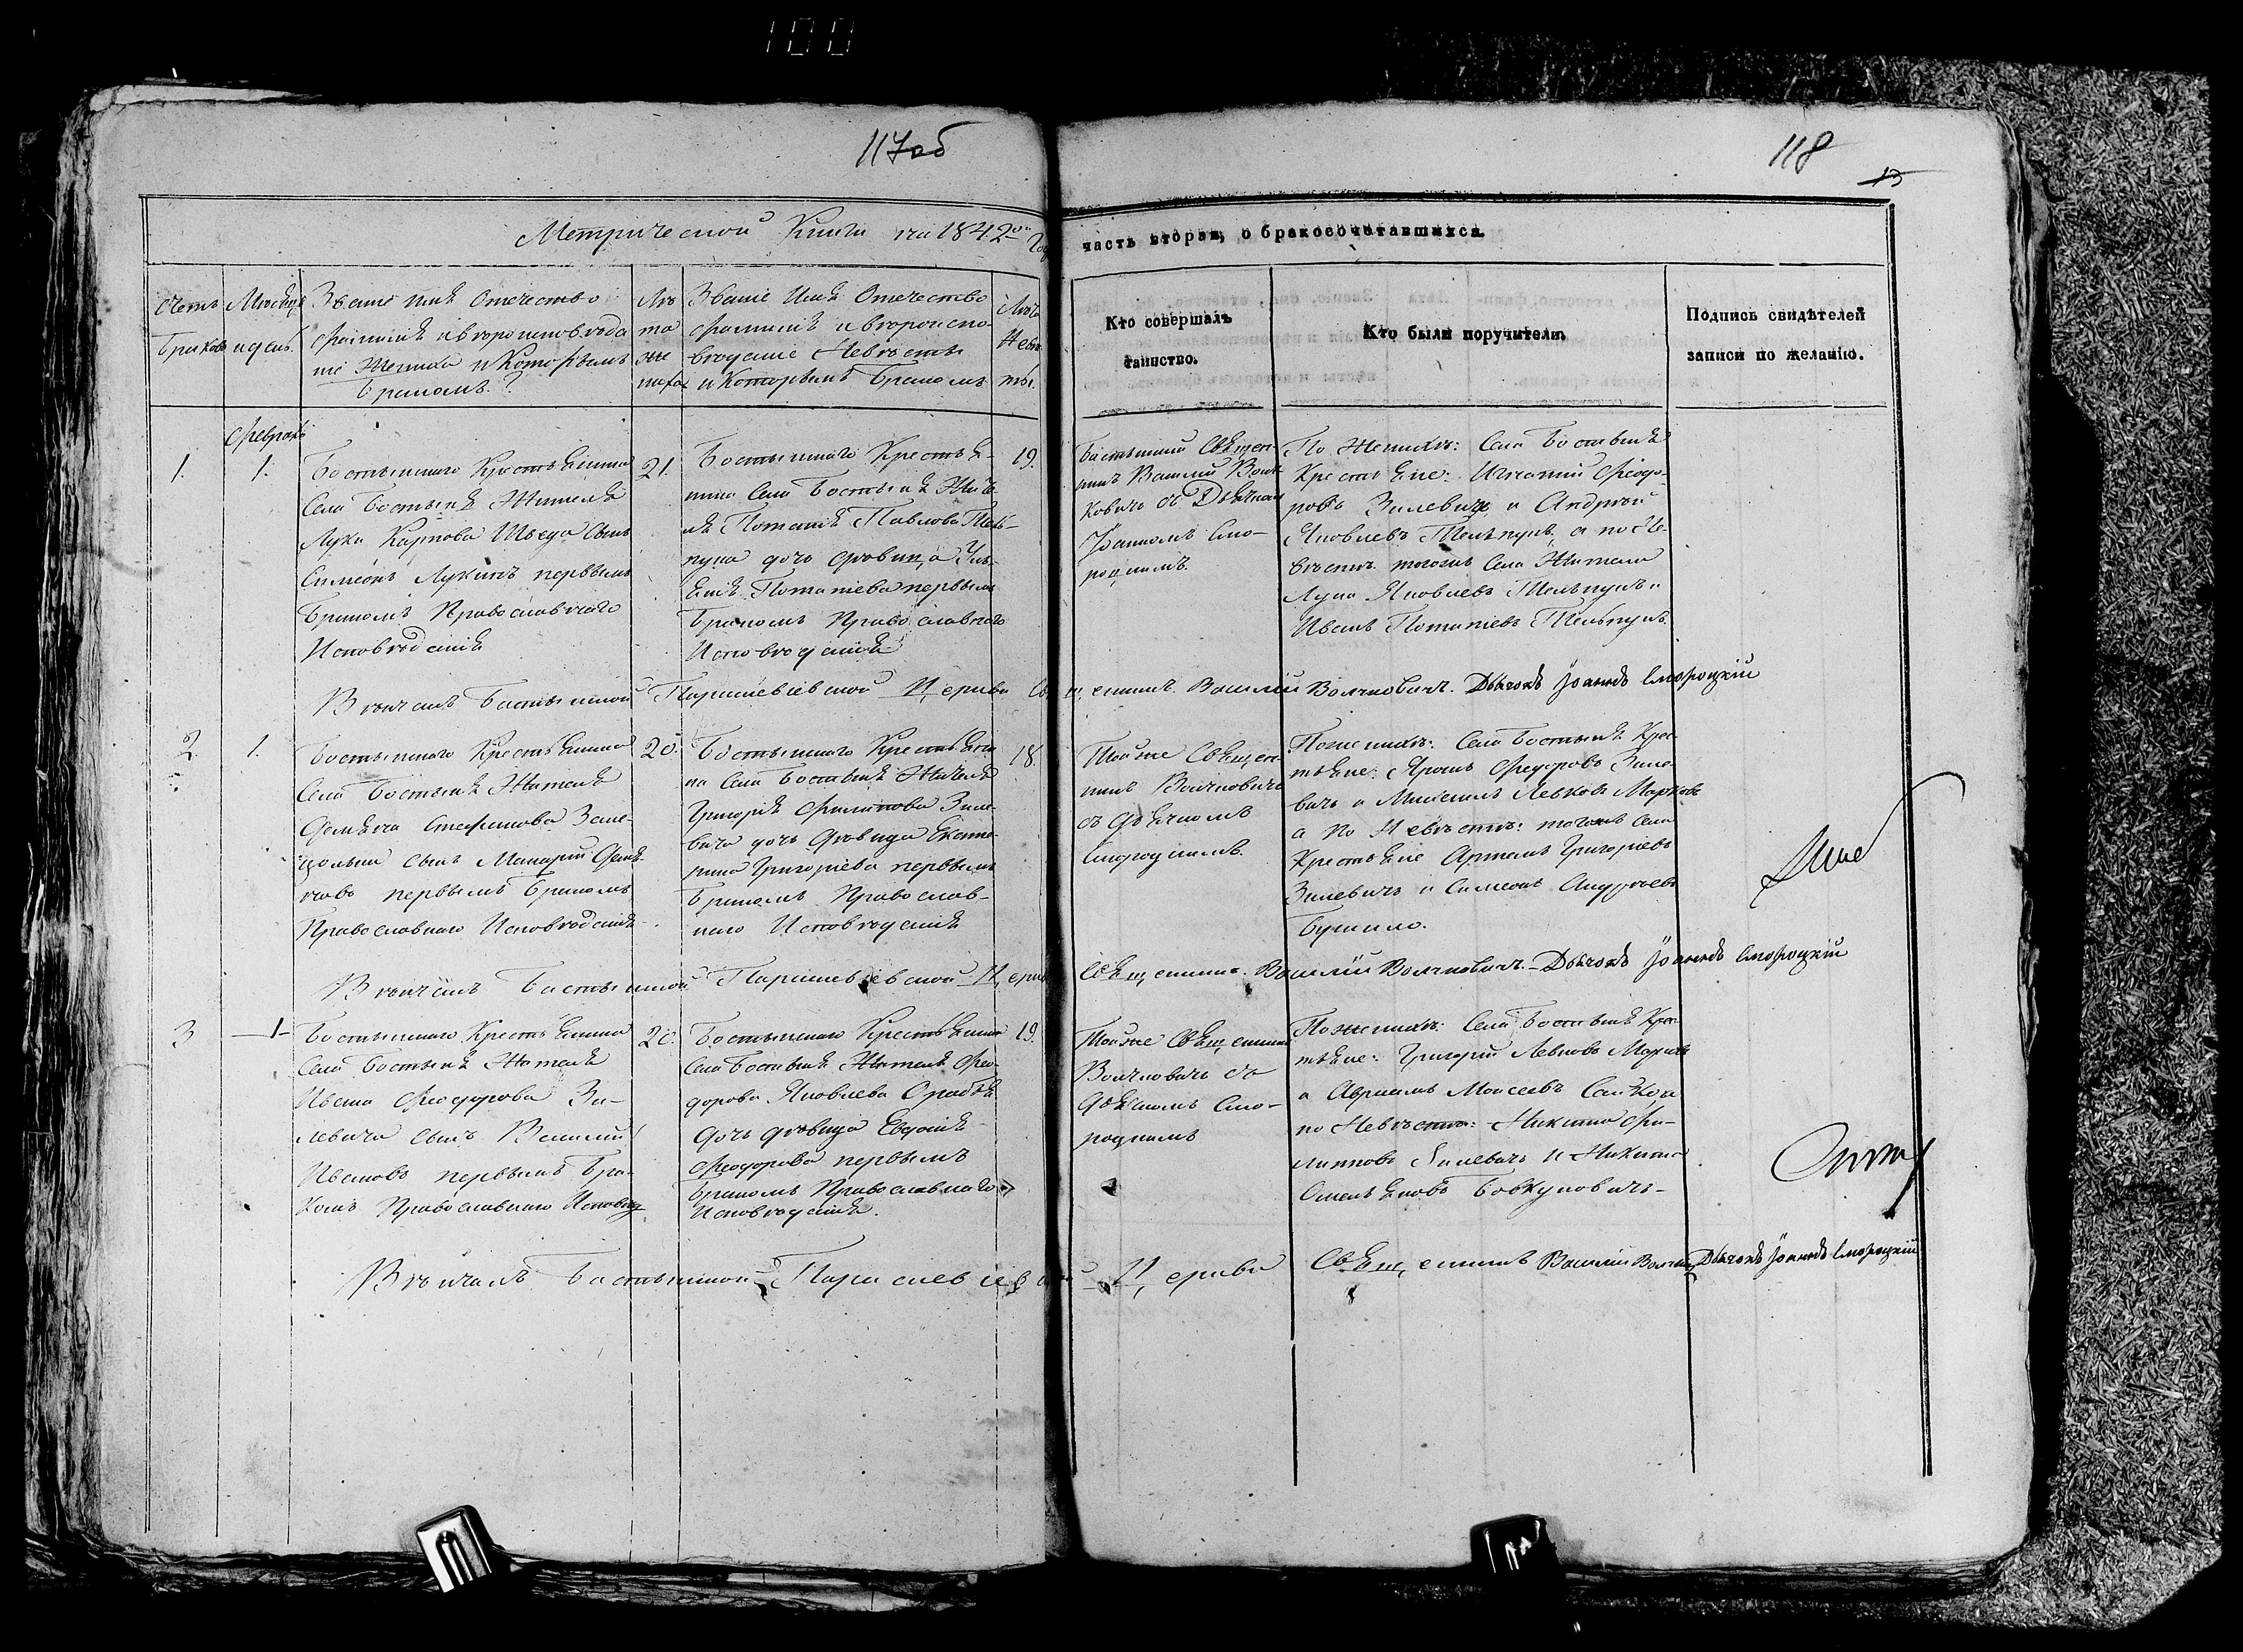 100
117об
118
13
Метрической Книги на 1842й Год
часть вторая, о бракосочетавшихся.
Счетъ
Браковъ
Мѣсяцъ
и день.
Званіе имя Отечество
фамилія и вѣроисповѣда
ніе Жениха и Которымъ
бракомъ?
Лѣ
та
же
ниха
Званіе Имя Отечество
фамилія и вѣроиспо-
вѣданіе Невѣсты
и Которымъ бракомъ
Лѣта
Невѣс
ты.
Кто совершалъ
таинство.
Кто были поручители.
Подпись свидѣтелей
записи по желанію.
Февраль
1.
1.
Бостынского Крестьянина
Села Бостыня Жителя
Луки Карпова Шведа Сынъ
Симеонъ Лукинъ первымъ
бракомъ Православнаго
Исповѣданія
21.
Бостынского Крестья-
нина Села Бостыня Жите-
ля Потапія Павлова Тель-
пука дочь дѣвица Уль-
яния Потапіева первымъ
бракомъ Православнаго
Исповѣданія
19.
Бостынский Священ-
никъ Василій Волч-
ковичъ съ Дьячкомъ
Іоанномъ Смо-
родскимъ.
По Женихѣ: Села Бостыня
Крестьяне: Игнатий Феодо-
ровъ Зилевичъ и Андрей
Яковлевъ Тельпукъ, а по Не-
вѣстѣ тогожъ Села Жители
Лука Яковлевъ Тельпукъ и
Иванъ Потапіевъ Тельпукъ.
Вѣнчалъ Бостынской Параскевіевской Церкви Священникъ Василій Волчковичъ. Дьячокъ Іоаннъ Смородскій
2
1.
Бостынского Крестьянина
Села Бостыня Жителя
Демьяна Стефанова
сынъ Макарій Демья-
новъ первымъ бракомъ
Православнаго Исповѣданія
20.
Бостынского Крестьяни
на Села Бостыня Жителя
Григорія Филипова Зиле-
вича дочь дѣвица Екате-
рина Григоріева первымъ
бракомъ Православ-
наго Исповѣданія
18.
Тойже Священ-
никъ Волчковичъ
съ дьячкомъ
Смородскимъ.
По женихѣ: Села Бостыня Крес-
тьяне: Федоровъ Зиле-
вичъ и Левковъ
а по Невѣстѣ: тогожъ Села
Крестьяне Артемъ Григоріевъ
Зилевичъ и Симеонъ Андреевъ
Вѣнчалъ Бостынской Параскевіевской Церкви Священникъ Василій Волчковичъ. Дьячокъ Іоаннъ Смородскій
3
1
Бостынского Крестьянина
Села Бостыня Жителя
Ивана Феодорова Зи-
левича сынъ Василий
Ивановъ первымъ бра-
комъ Православнаго Исповѣд
20.
Бостынского Крестьянина
Села Бостыня Жителя Фео-
дорова Яковлева
дочь дѣвица Евдокія
Феодорова первымъ
бракомъ Православнаго
Исповѣданія.
19.
Тойже Священникъ
Волчковичъ съ
дьячкомъ Смо-
родскимъ
По женихѣ: Села Бостыня Крес-
тьяне: Григорій Левковъ
и Моисеевъ
по Невѣстѣ: Никита Фи-
липповъ Зилевичъ и Никита
Омельяновъ Бовкуновичъ
Вѣнчалъ Бостынской Параскевіевской Церкви Священникъ Василій Дьячокъ Іоаннъ Смородскій